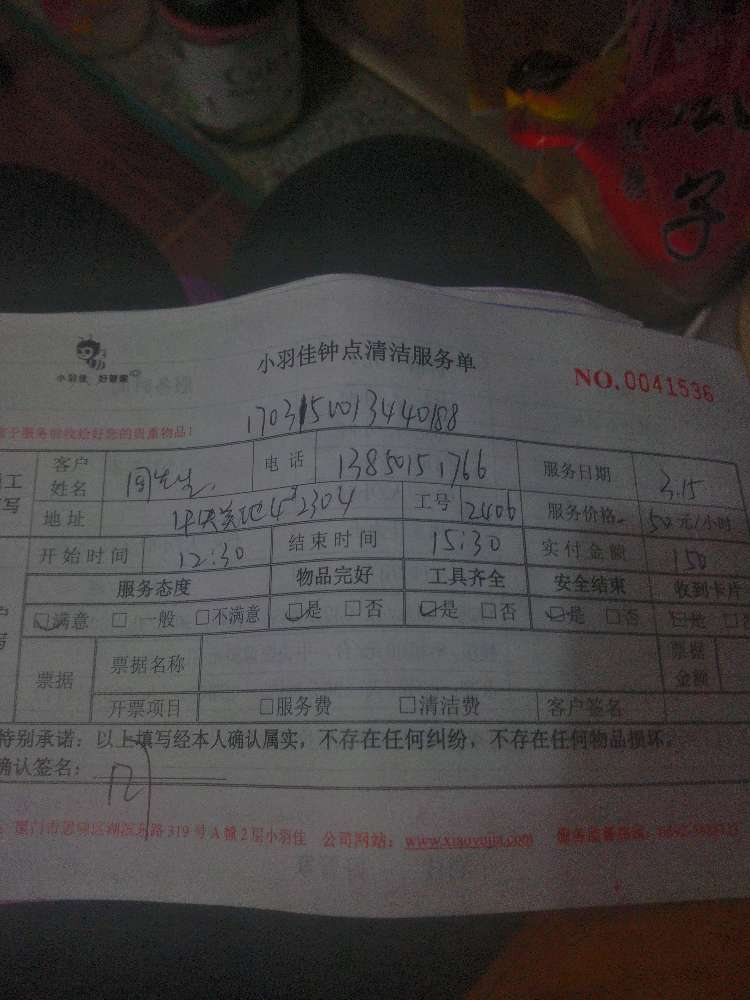 小羽佳 好管家
小羽佳钟点清洁服务单
NO.0041536
17031500134440188
于服务前收拾好您的贵重物品!
客户姓名 周先生 电话 13850151766 服务日期 3.15
地址 2304 工号 2406 服务价格 50元/小时
开始时间 12:30 结束时间 15:30 实付金额 150
服务态度 物品完好 工具齐全 安全结束 收到卡片
☑满意 □一般 □不满意 ☑是 □否 ☑是 □否 ☑是 □否 ☑是
票据 票据名称 票据金额
开票项目 □服务费 □清洁费 客户签名
特别承诺：以上填写经本人确认属实，不存在任何纠纷，不存在任何物品损坏。
确认签名：
厦门市思明区湖滨东路319号A幢2层小羽佳 公司网站：www.xiaoyujia.com 服务监督热线：